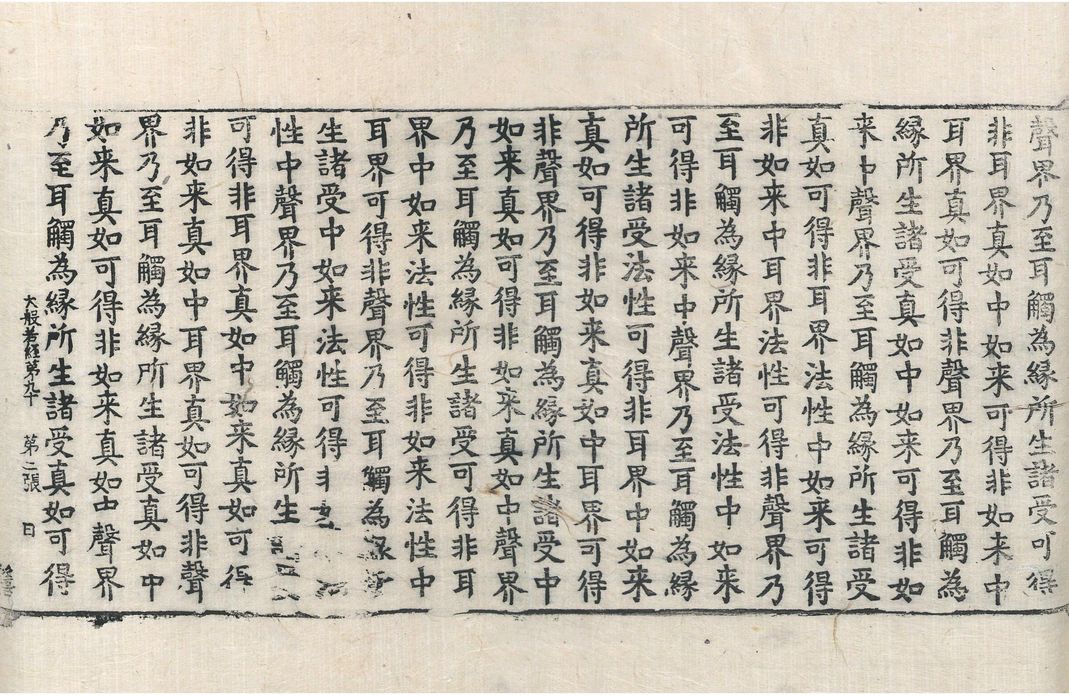 聲界乃至耳觸為縁所生諸受可得
非耳界真如中如来可得非如来中
耳界真如可得非聲界乃至耳觸為
縁所生諸受真如中如来可得非如
来中聲界乃至耳觸為縁所生諸受
真如可得非耳界法性中如来可得
非如来中耳界法性可得非聲界乃
至耳觸為縁所生諸受法性中如来
可得非如来中聲界乃至耳觸為縁
所生諸受法性可得非耳界中如来
真如可得非如来真如中耳界可得
非聲界乃至耳觸為縁所生諸受中
如来真如可得非如来真如中聲界
乃至耳觸為縁所生諸受可得非耳
界中如来法性可得非如来法性中
耳界可得非聲界乃至耳觸為縁
生諸受中如来法性可得
性中聲界乃至耳觸為縁所生
可得非耳界真如中如来真如可得
非如来真如中耳界真如可得非聲
界乃至耳觸為縁所生諸受真如中
如来真如可得非如来真如中聲界
乃至耳觸為縁所生諸受真如可得
大般若経第九十 第二張 日